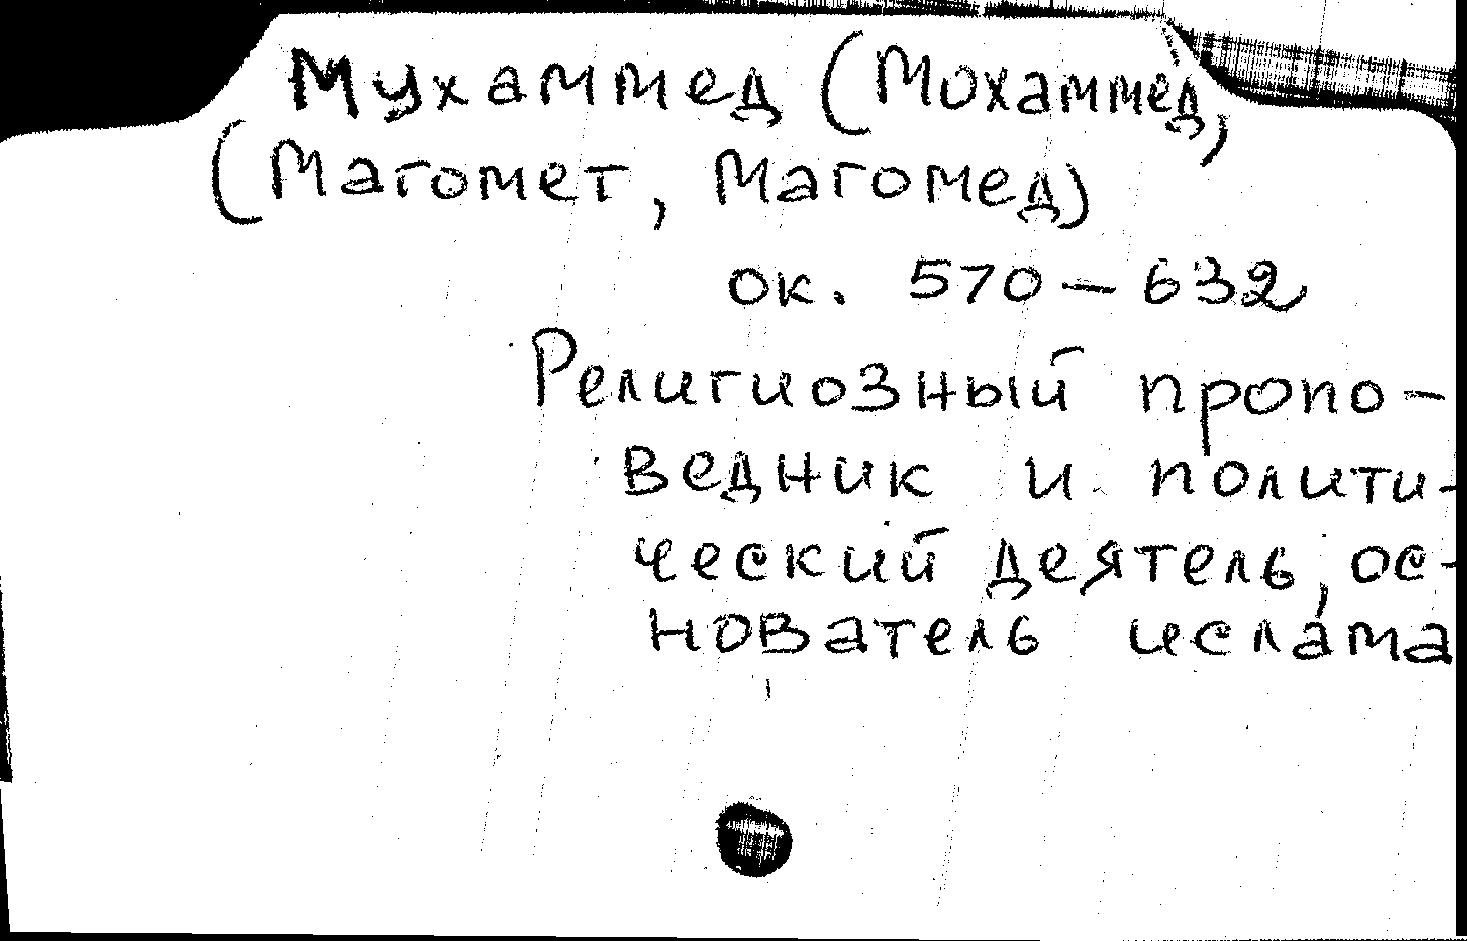 Мухаммед (Мохаммед,
(Магомет, Магомед)
ок. 570 – 632
Религиозный пропо-
ведник и полити-
ческий деятель, ос-
нователь ислама